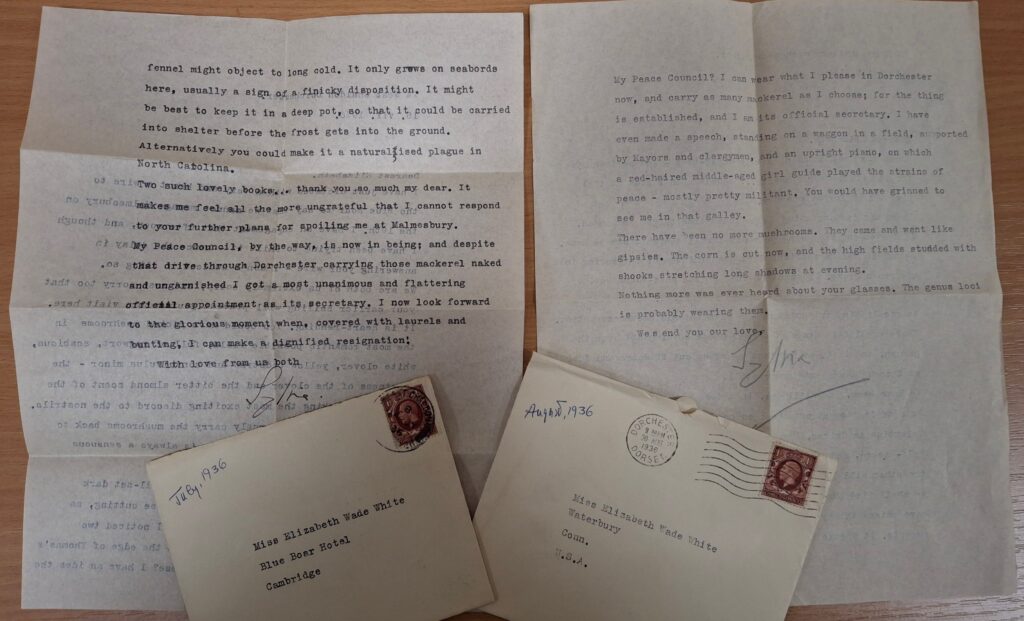 fennel might object to long cold. It only grows on seabords
here, usually a sign of a finicky disposition. It might
be best to keep it in a deep pot, so that it could be carried
into shelter before the frost gets into the ground.
Alternatively you could make it a naturalised plague in
North Carolina.
Two such lovely books... thank you so much my dear. It
makes me feel all the more ungrateful that I cannot respond
to your further plans for spoiling me at Malmesbury.
My Peace Council, by the way, is now in being; and despite
that drive through Dorchester carrying those mackerel naked
and ungarnished I got a most unanimous and flattering
official appointment as its secretary. I now look forward
to the glorious moment when, covered with laurels and
bunting, I can make a dignified resignation!
With love from us both
Sylvia.
My Peace Council? I can wear what I please in Dorchester
now, and carry as many mackerel as I choose; for the thing
is established, and I am its official secretary. I have
even made a speech, standing on a waggon in a field, supported
by Mayors and clergymen, and an upright piano, on which
a red-haired middle-aged girl guide played the strains of
peace - mostly pretty militant. You would have grinned to
see me in that galley.
There have been no more mushrooms. They came and went like
gipsies. The corn is cut now, and the high fields studded with
shooks stretching long shadows at evening.
Nothing more was ever heard about your glasses. The genus loci
is probably wearing them.
We send you our love,
Sylvia
July, 1936
Miss Elizabeth Wade White
Blue Boar Hotel
Cambridge
August, 1936
DORCHESTER
DORSET
1936
Miss Elizabeth Wade White
Waterbury
Conn.
U.S.A.